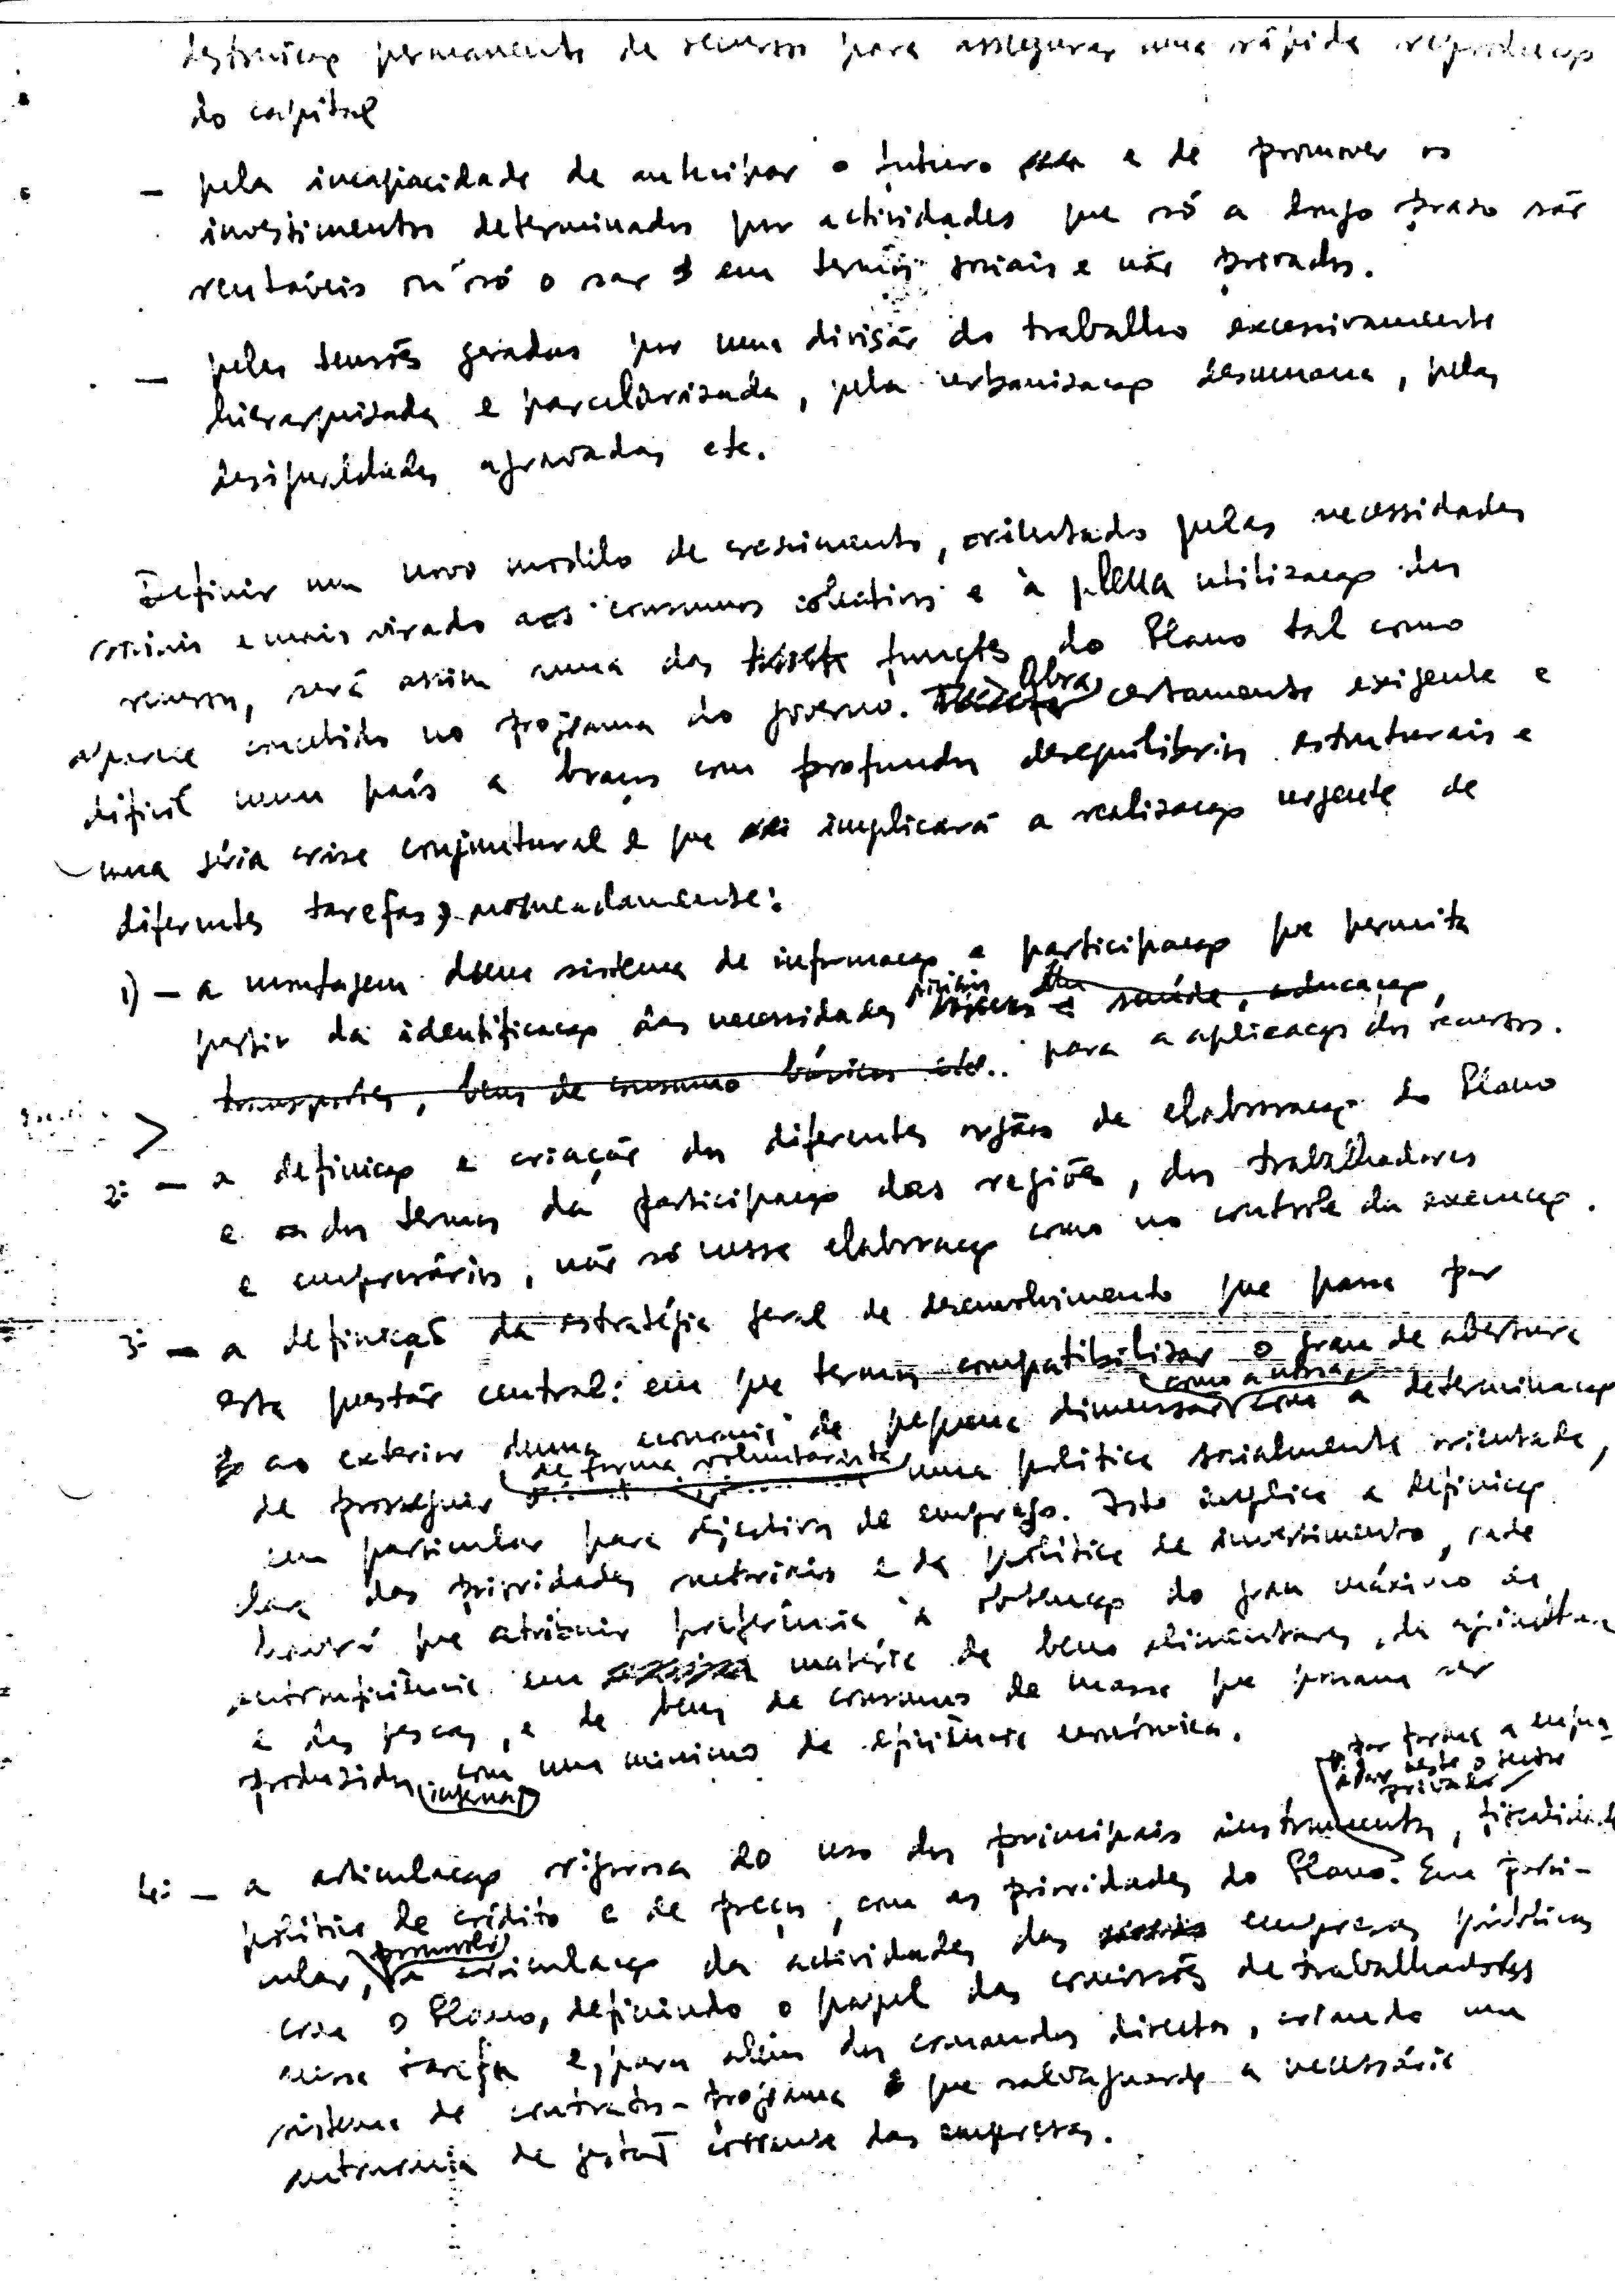 destruição permanente de recursos para assegurar uma rápida reprodução
do capital
- pela incapacidade de antecipar o futuro e de promover os
investimentos determinados por actividades que só a longo prazo são
rentáveis ou só o são em termos sociais e não privados.
- pelas tensões geradas por uma divisão do trabalho excessivamente
hierarquizada e parcelarizada, pela urbanização desumana, pelas
desigualdades agravadas etc.
Definir um novo modelo de crescimento, orientado pelas necessidades
sociais e mais virado aos consumos colectivos e à plena utilização dos
recursos, será assim uma das funções do Plano tal como
aparece concebido no programa do governo. Obra certamente exigente e
difícil num país a braços com profundos desequilíbrios estruturais e
uma séria crise conjuntural e que implicará a realização urgente de
diferentes tarefas, nomeadamente:
1) - a montagem dum sistema de informação e participação que permita
partir da identificação das necessidades sociais e saúde, educação,
transportes, bens de consumo básicos etc.. para a aplicação dos recursos.
2: - a definição e criação dos diferentes orgãos de elaboração do Plano
e dos termos da participação das regiões, dos trabalhadores
e empresários, não só nessa elaboração como no controle da execução.
3: - a definição da estratégia geral de desenvolvimento que passa por
esta questão central: em que termos compatibilizar o grau de abertura
ao exterior duma economia de pequena dimensão como a nossa com a determinação
de prosseguir de forma voluntarista uma política socialmente orientada,
em particular para objectivos de emprego. Isto implica a definição
clara das prioridades sectoriais e da política de investimento, onde
haverá que atribuir preferência à obtenção do grau máximo de
autosuficiência em matéria de bens alimentares, da agricultura
e das pescas, e de bens de consumo de massa que possam ser
produzidos com um mínimo de eficiência económica.
interna
por forma a enqua
drar neste o sector
privado
4: - a articulação rigorosa do uso dos principais instrumentos, fiscalidade
política de crédito e de preços, com as prioridades do Plano. Em parti-
cular, promover a articulação da actividades das empresas públicas
com o Plano, definindo o papel das comissões de trabalhadores
nessa tarefa e, para além dos comandos directos, criando um
sistema de contratos-programa que salvaguarde a necessária
autonomia de gestão corrente das empresas.